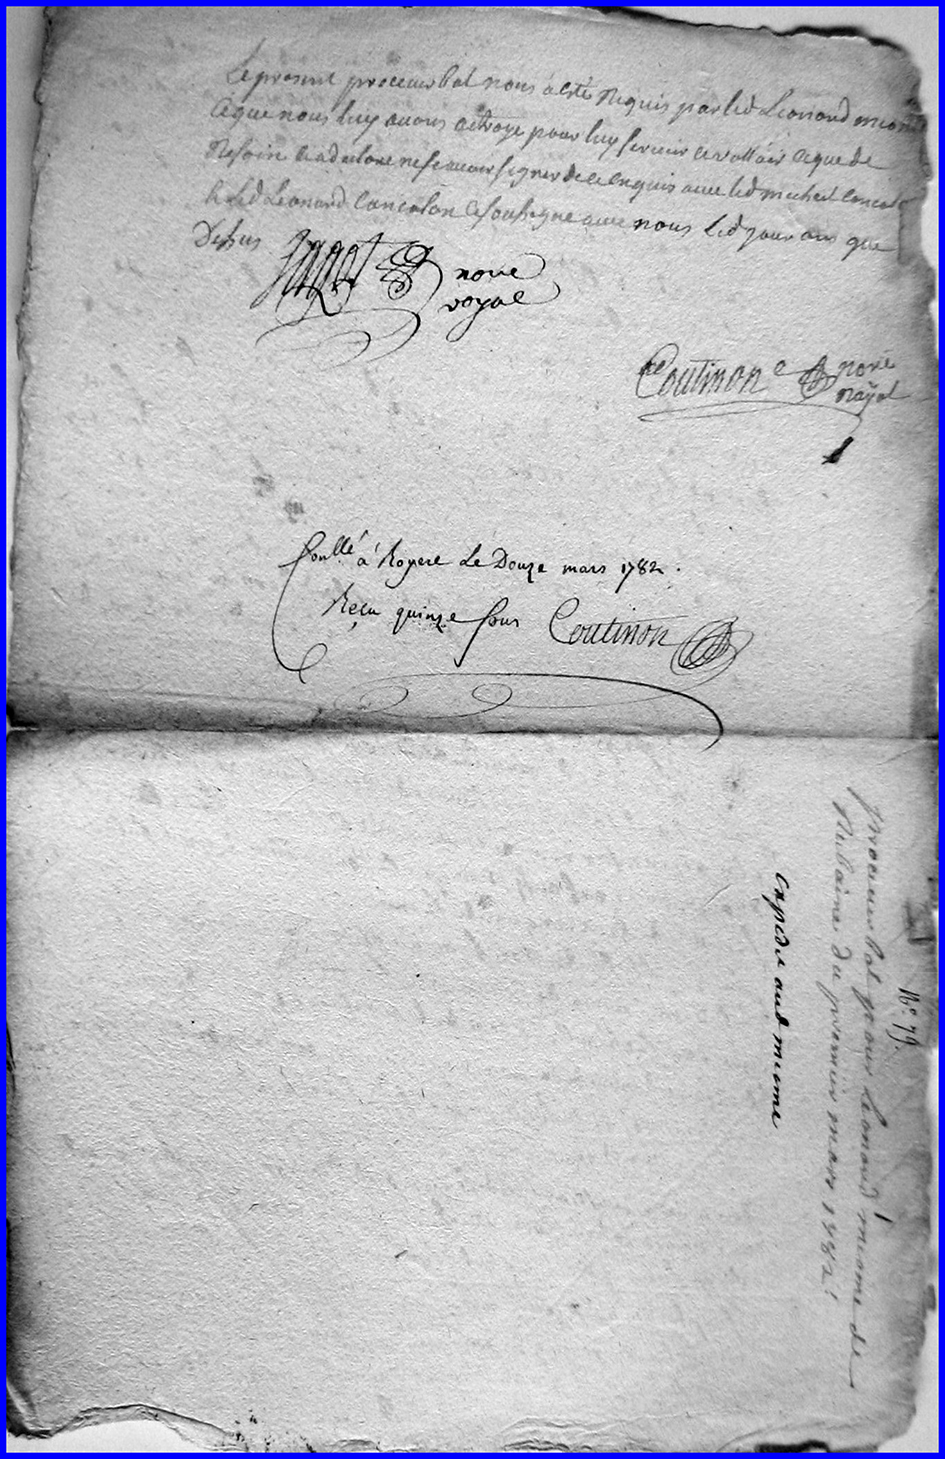 Le present proceuverbal nous a esté Requis par led Leonard miome
ce que nous luy avons octroye pour luy servir et valloir ce que de
Resoin et a declare ne scavoir signer de ce enquis avec led micheil
& led Leonard Lancolon a soussigne avec nous Led jour an que
Dessus
no:re
royal
Coutinon no:re
Rayal
Coullé à Royere Le Douze mars 1782.
Reçu quinze sous Coutinon
N° 79.
proceuverbal pour Leonard miome de
Rubaine du premier mars 1782
expedie aud miome